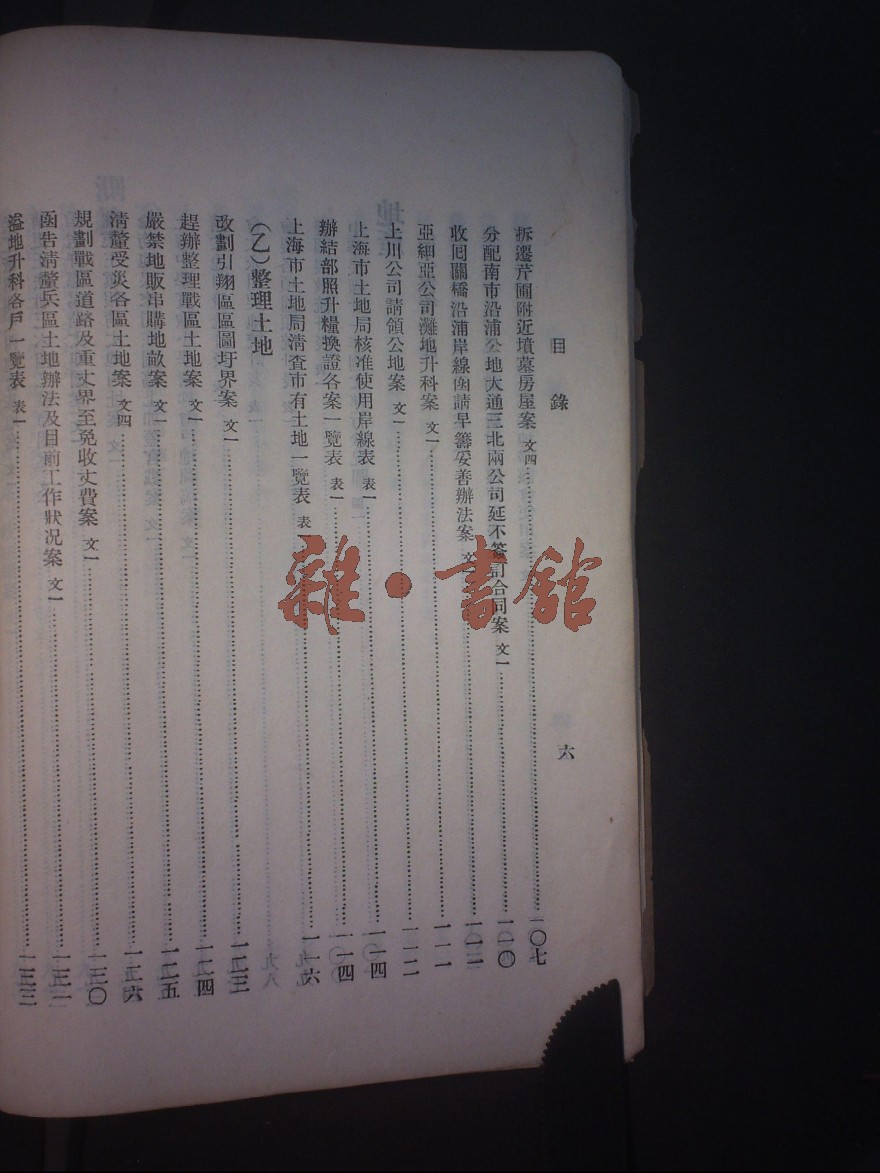 目錄 六
拆遷芹圃附近墳墓房屋案 文四 一〇七
分配南市沿浦公地大通三北兩公司延不簽訂合同案 文一 一一〇
收回關橋沿浦岸線函請早籌妥善辦法案 文
亞細亞公司灘地升科案 文一 一一一
上川公司請領公地案 文一 一一二
上海市土地局核准使用岸線表 表一 一一四
辦結部照升糧換證各案一覽表 表一 一一四
上海市土地局清查市有土地一覽表 表一 一一六
(乙)整理土地
改劃引翔區區圖圩界案 文一 一二三
趕辦整理戰區土地案 文一 一二四
嚴禁地販串購地畝案 文一 一二五
清釐受災各區土地案 文四 一二六
規劃戰區道路及重丈界至免收丈費案 文一 一三〇
函告清釐兵區土地辦法及目前工作狀况案 文一 一三一
溢地升科各戶一覽表 表一
雜·書館